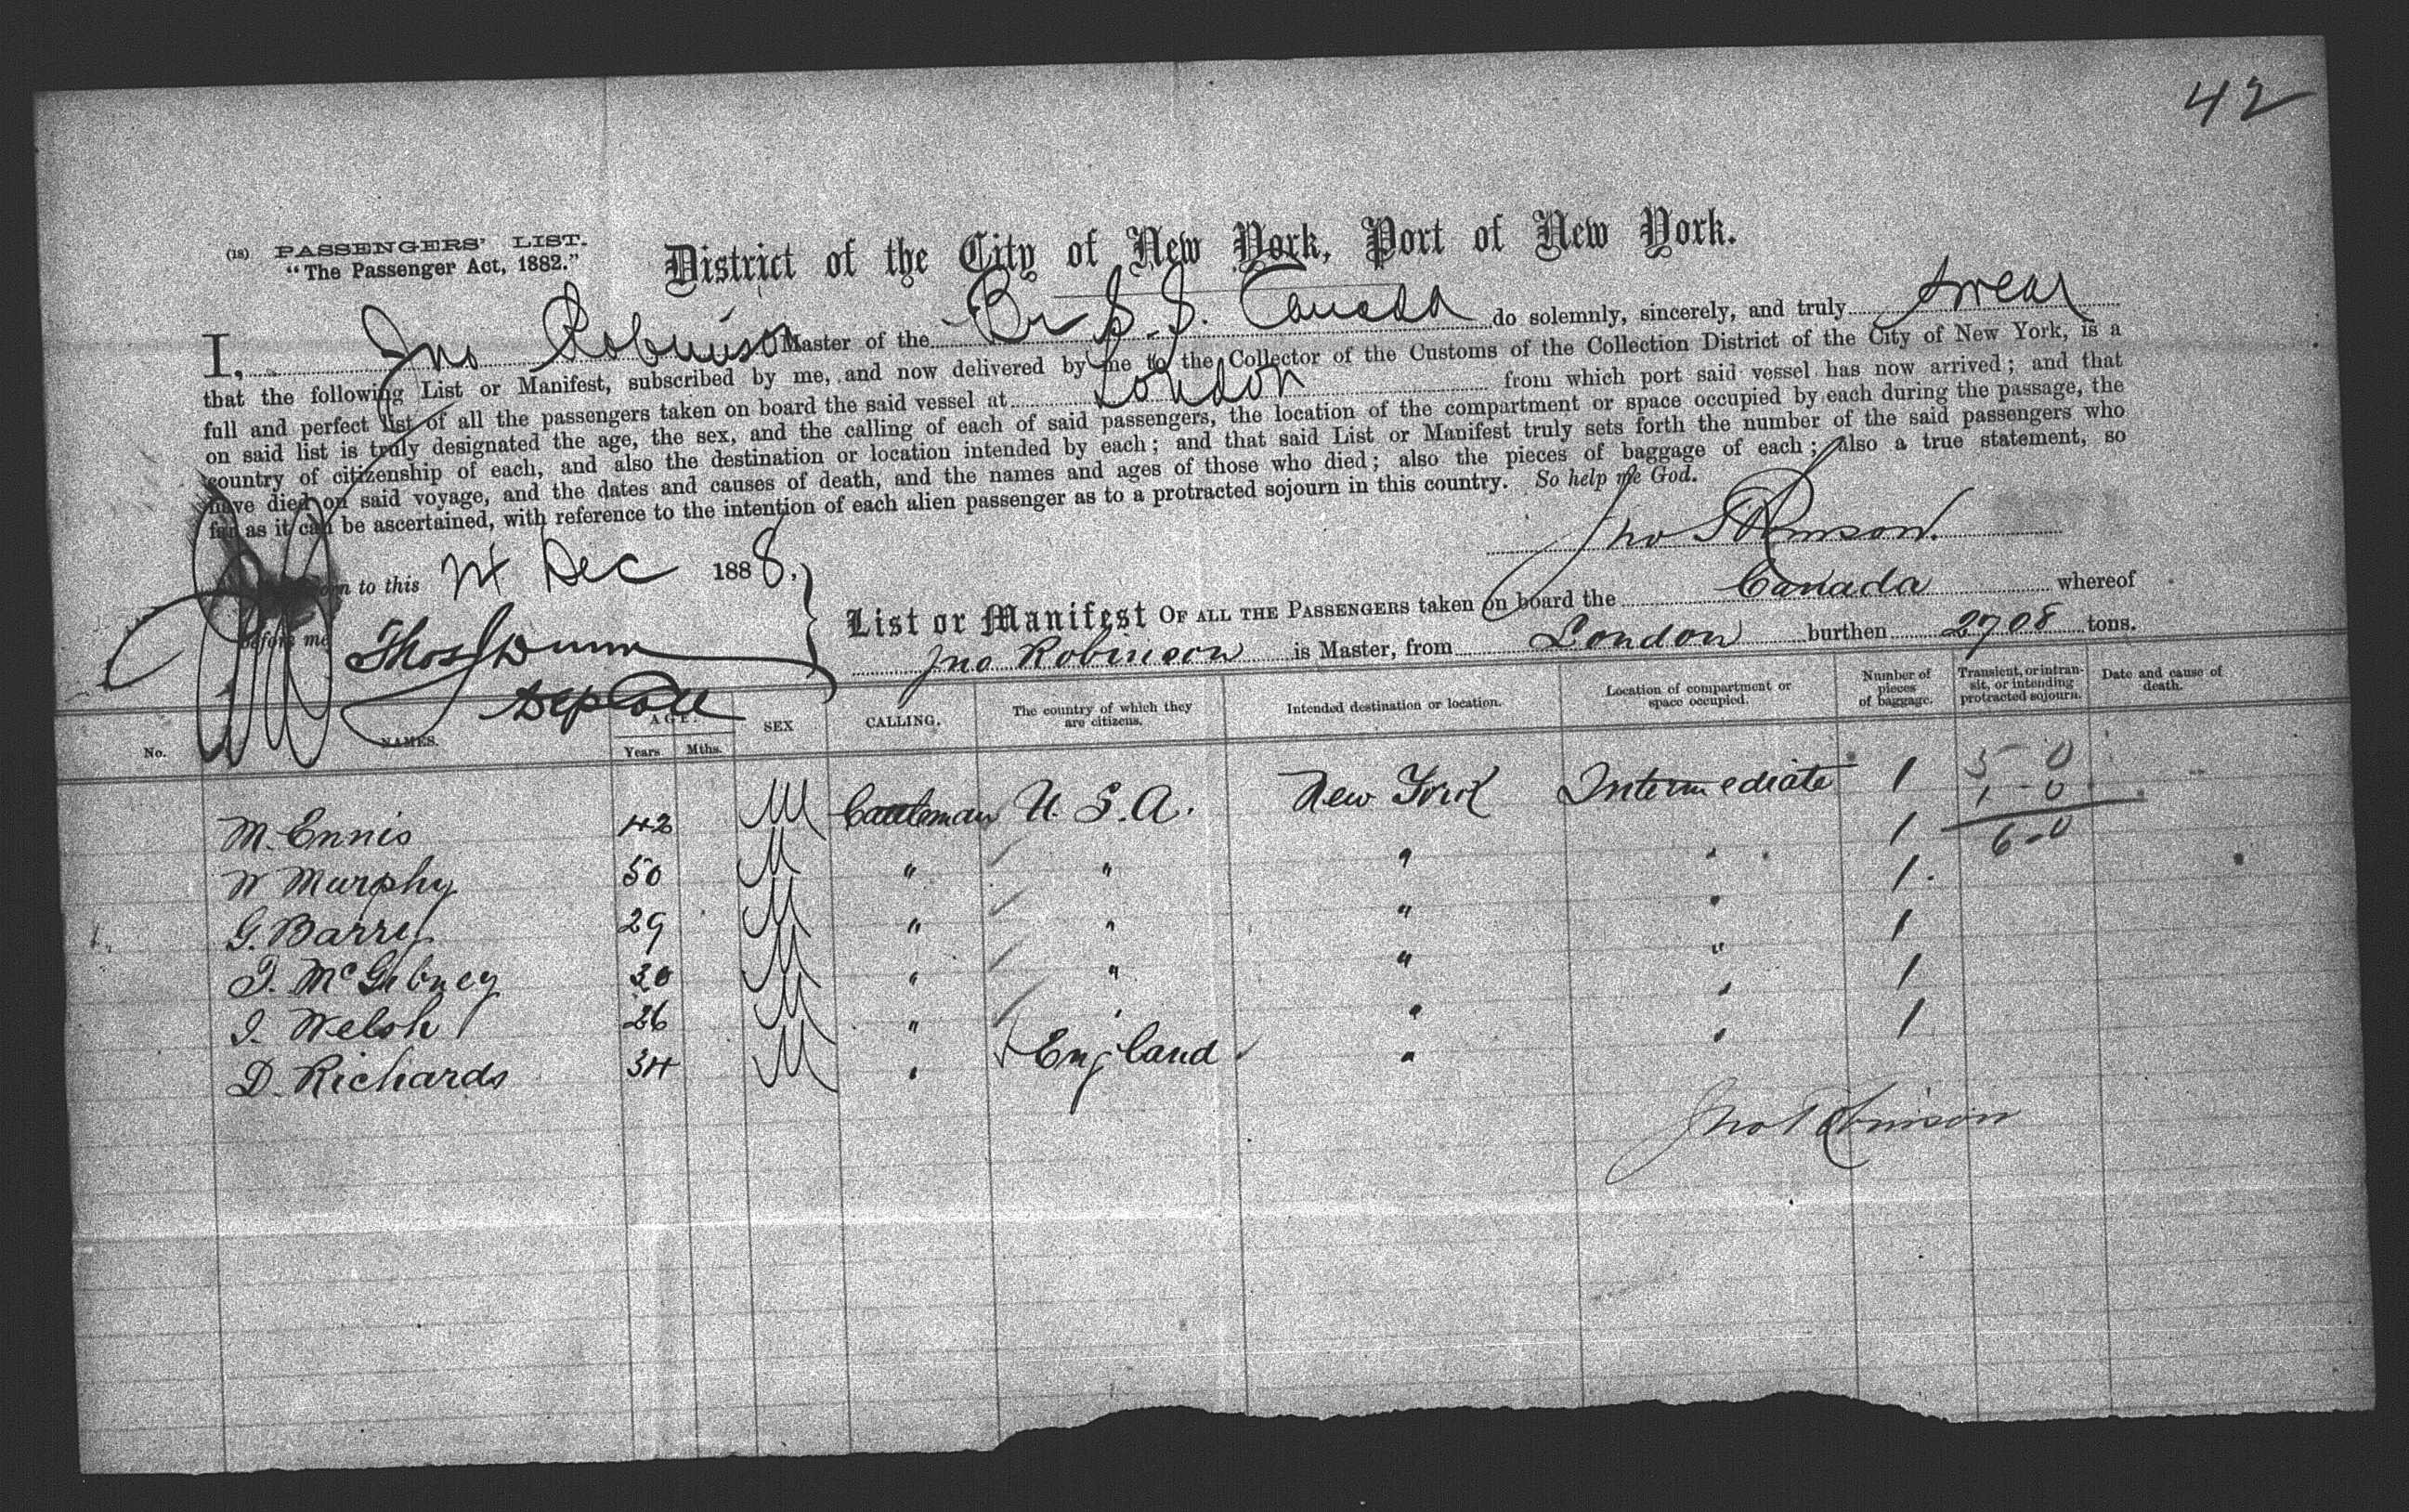 42
(18) PASSENGERS' LIST.
"The Passenger Act, 1882."
District of the City of New York, Port of New York.
I, Jno Robinson Master of the Br S.S. Canada do solemnly, sincerely, and truly swear
that the following List or Manifest, subscribed by me, and now delivered by me to the Collector of the Customs of the Collection District of the City of New York, is a
full and perfect list of all the passengers taken on board the said vessel at London from which port said vessel has now arrived; and that
on said list is truly designated the age, the sex, and the calling of each of said passengers, the location of the compartment or space occupied by each during the passage, the
country of citizenship of each, and also the destination or location intended by each; and that said List or Manifest truly sets forth the number of the said passengers who
have died on said voyage, and the dates and causes of death, and the names and ages of those who died; also the pieces of baggage of each; also a true statement, so
far as it can be ascertained, with reference to the intention of each alien passenger as to a protracted sojourn in this country. So help me God.
Jno Robinson.
to this Dec 1888,
before me Thos Dunn
Dep Coll
List or Manifest OF ALL THE PASSENGERS taken on board the Canada whereof
Jno Robinson is Master, from London burthen 2708 tons.
No. NAMES. AGE. Years Mths. SEX CALLING. The country of which they are citizens. Intended destination or location. Location of compartment or space occupied. Number of pieces of baggage. Transient, or intransit, or intending protracted sojourn. Date and cause of death.
M. Ennis 42 M Cattleman U.S.A. New York Intermediate 1 5-0
1-0
6-0
W Murphy 50 M " " " " 1
G. Barry 29 M " " " " 1
J. McGibney 30 M " " " " 1
J. Welsh 26 M " " " " 1
D. Richards 34 M " England " " 1
Jno Robinson